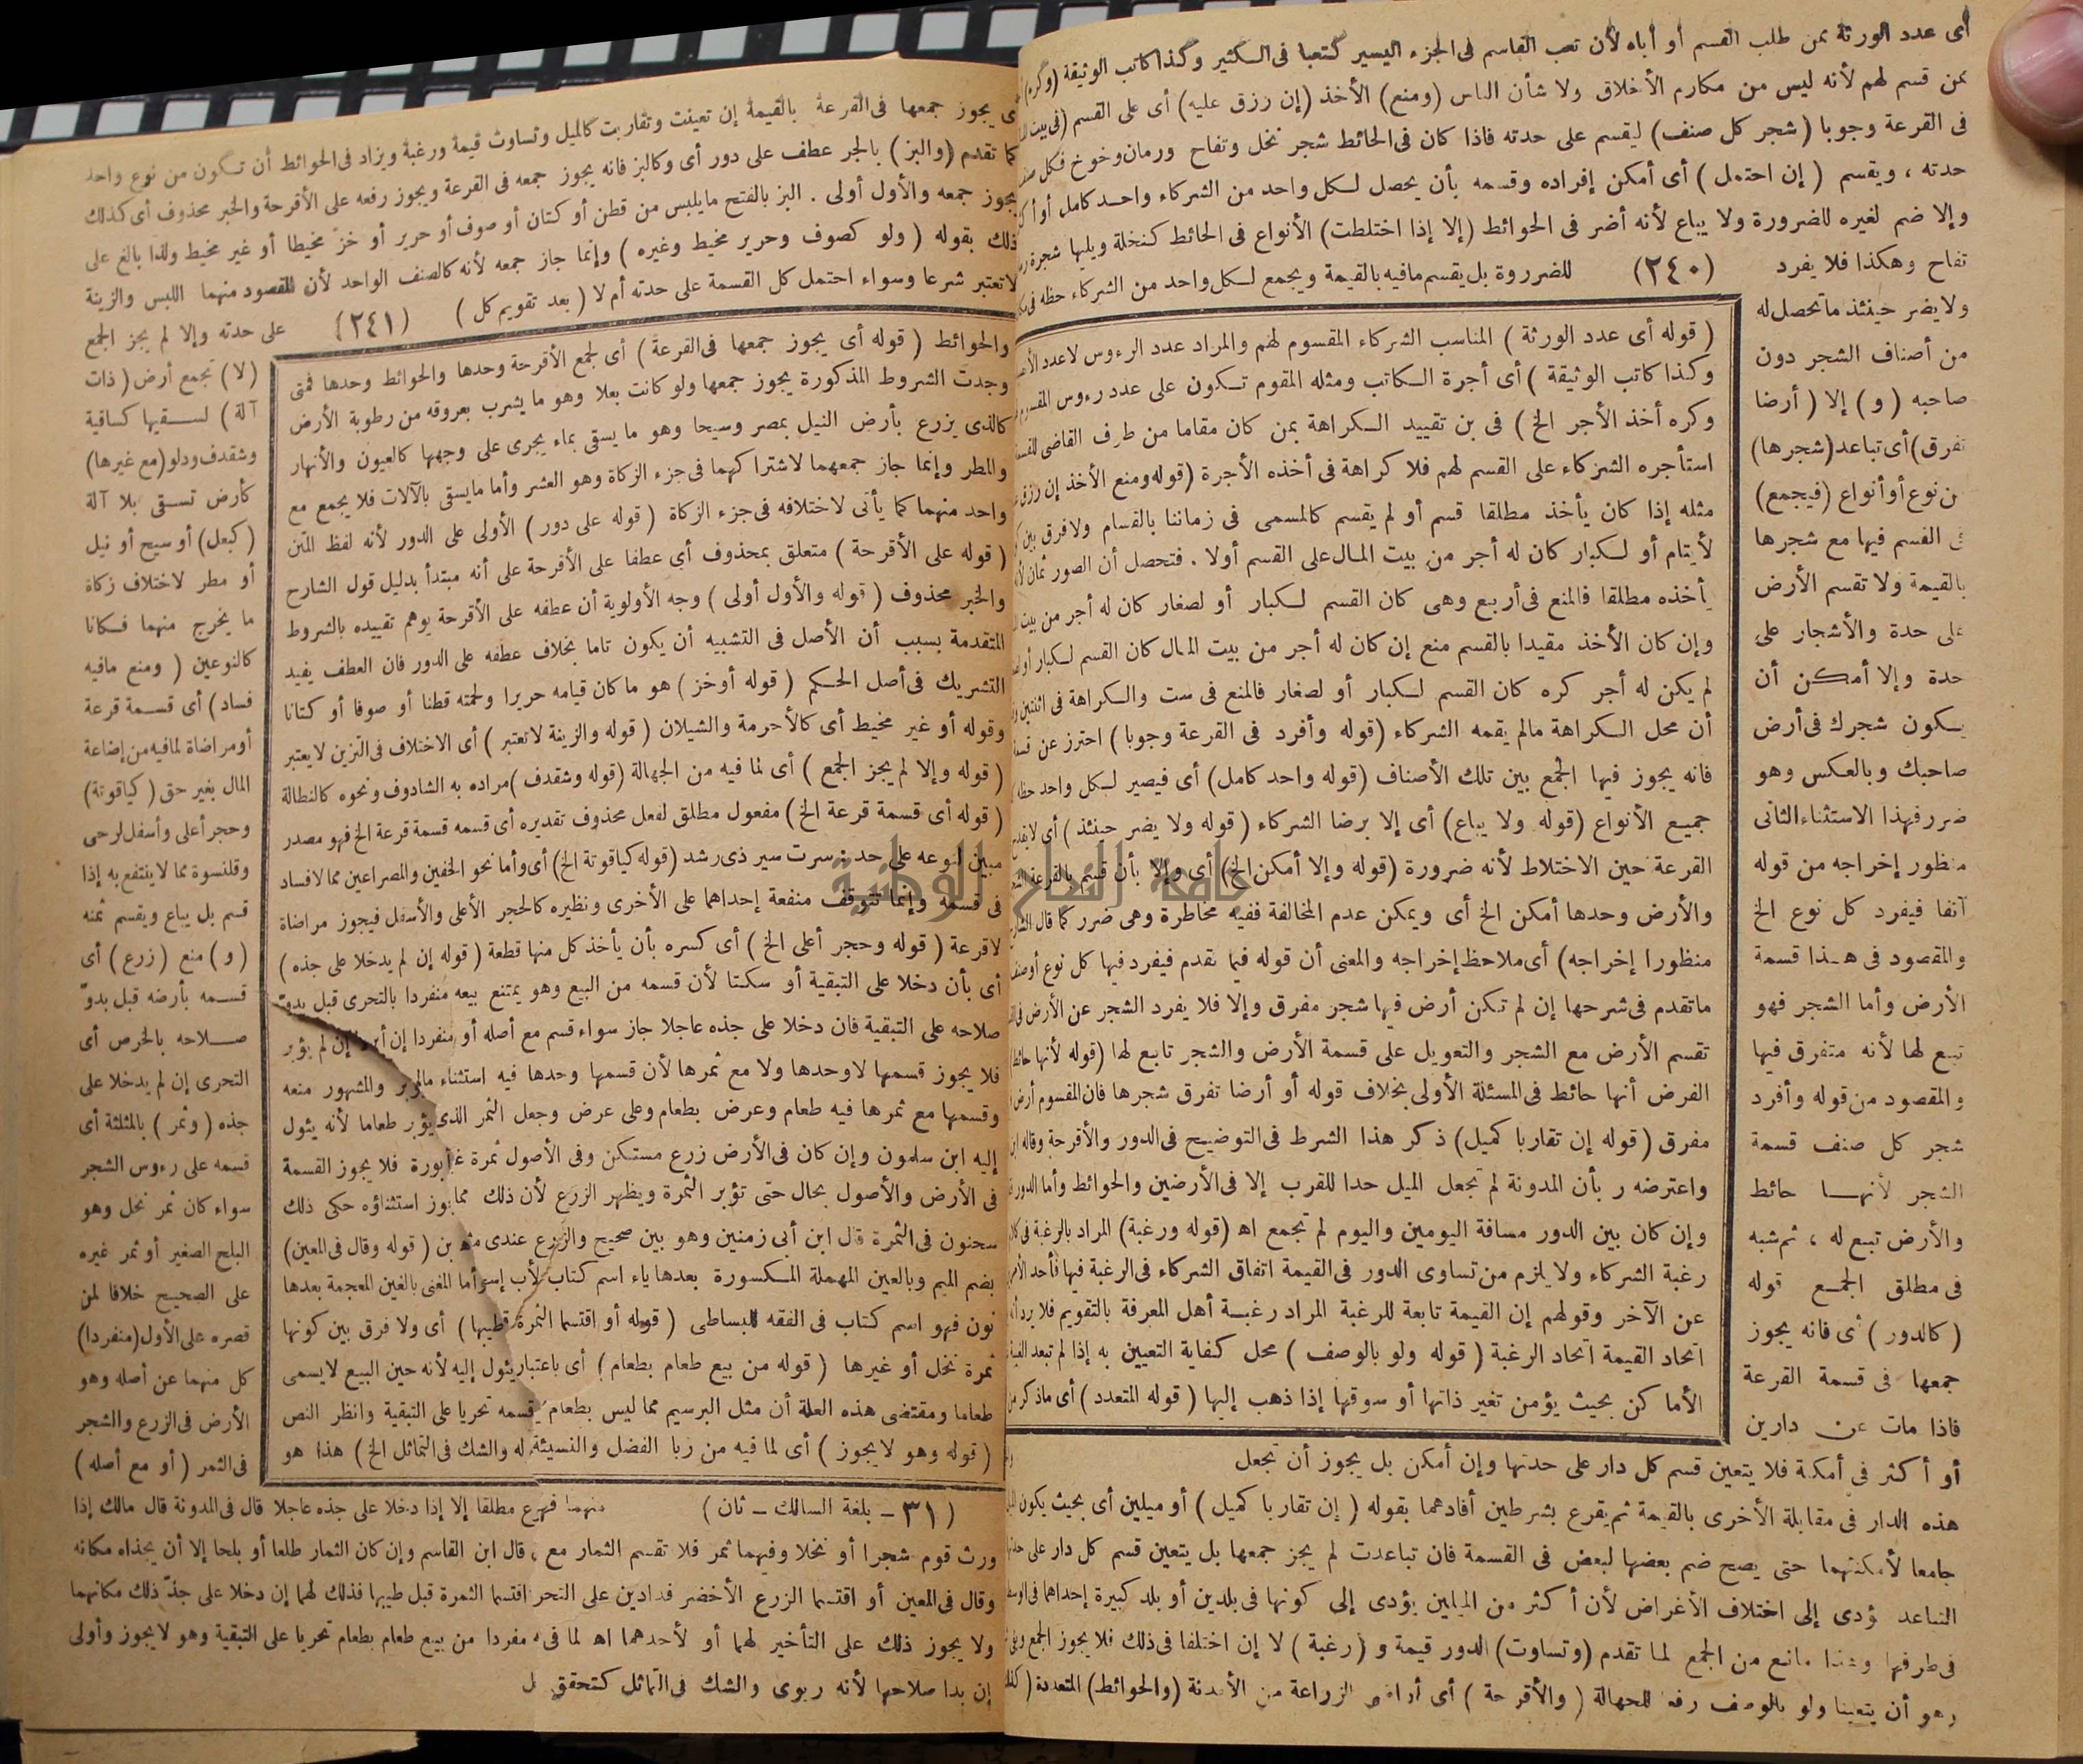 أى عدد الورثة ممن طلب القسم أو أباه لأن تعب القاسم فى الجزء اليسير كتعبا فى الكثير وكذا كاتب الوثيقة (وكره)
ممن قسم لهم لأنه ليس من مكارم الأخلاق ولا شأن الناس (ومنع) الأخذ (إن رزق عليه) أى على القسم (فى بيت
فى القرعة وجوبا (شجر كل صنف) ليقسم على حدته فاذا كان فى الحائط شجر نخل وتفاح ورمان وخوخ فكل
حدته ، ويقسم ( إن احتمل ) أى أمكن إفراده وقسمه بأن يحصل لكل واحد من الشركاء واحد كامل أو
وإلا ضم لغيره للضرورة ولا يباع لأنه أضر فى الحوائط (إلا إذا اختلطت) الأنواع فى الحائط كنخلة ويليها شجرة
تفاح وهكذا فلا يفرد (٢٤٠) للضرورة بل يقسم مافيه بالقيمة ويجمع لكل واحد من الشركاء حظه فى
ولا يضر حينئذ ما تحصل له
من أصناف الشجر دون
صاحبه (و) إلا (أرضا
تفرق) أى تباعد (شجرها)
من نوع أو أنواع (فيجمع)
فى القسم فيها مع شجرها
بالقيمة ولا تقسم الأرض
على حدة والأشجار على
حدة وإلا أمكن أن
يكون شجرك فى أرض
صاحبك وبالعكس وهو
ضرر فهذا الاستثناء الثانى
منظور إخراجه من قوله
آنفا فيفرد كل نوع الخ
والمقصود فى هذا قسمة
الأرض وأما الشجر فهو
تبع لها لأنه متفرق فيها
والمقصود من قوله وأفرد
شجر كل صنف قسمة
الشجر لأنها حائط
والأرض تبع له ، ثم شبه
فى مطلق الجمع قوله
( كالدور ) أى فانه يجوز
جمعها فى قسمة القرعة
فاذا مات عن دارين
( قوله أى عدد الورثة ) المناسب الشركاء المقسوم لهم والمراد عدد الرءوس لا عدد
وكذا كاتب الوثيقة ) أى أجرة الكاتب ومثله المقوم تكون على عدد رءوس
وكره أخذ الأجر الخ ) فى بن تقييد الكراهة بمن كان مقاما من طرف القاضى
استأجره الشركاء على القسم لهم فلا كراهة فى أخذه الأجرة (قوله ومنع الأخذ إن رزق
مثله إذا كان يأخذ مطلقا قسم أو لم يقسم كالمسمى فى زماننا بالقسام ولا فرق بين
لأيتام أو لكبار كان له أجر من بيت المال على القسم أولا . فتحصل أن الصور ثمان
يأخذه مطلقا فالمنع فى أربع وهى كان القسم لكبار أو لصغار كان له أجر من بيت
وإن كان الأخذ مقيدا بالقسم منع إن كان له أجر من بيت المال كان القسم لكبار
لم يكن له أجر كره كان القسم لكبار أو لصغار فالمنع فى ست والكراهة فى اثنتين
أن محل الكراهة مالم يقمه الشركاء (قوله وأفرد فى القرعة وجوبا ) احترز عن
فانه يجوز فيها الجمع بين تلك الأصناف (قوله واحد كامل) أى فيصير لكل واحد
جميع الأنواع (قوله ولا يباع) أى إلا برضا الشركاء ( قوله ولا يضر حينئذ ) أى
القرعة حين الاختلاط لأنه ضرورة (قوله وإلا أمكن الخ) أى وإلا بأن قسم بالقرعة
والأرض وحدها أمكن الخ أى ويمكن عدم المخالفة ففيه مخاطرة وهى ضرر كما قال
منظورا إخراجه) أى ملاحظ إخراجه والمعنى أن قوله فيما تقدم فيفرد فيها كل نوع
ماتقدم فى شرحها إن لم تكن أرض فيها شجر مفرق وإلا فلا يفرد الشجر عن الأرض
تقسم الأرض مع الشجر والتعويل على قسمة الأرض والشجر تابع لها (قوله لأنها
الفرض أنها حائط فى المسئلة الأولى بخلاف قوله أو أرضا تفرق شجرها فان المقسوم
مفرق (قوله إن تقاربا كميل) ذكر هذا الشرط فى التوضيح فى الدور والأقرحة وقاله
واعترضه ر بأن المدونة لم تجعل الميل حدا للقرب إلا فى الأرضين والحوائط وأما
وإن كان بين الدور مسافة اليومين واليوم لم تجمع اه (قوله ورغبة) المراد بالرغبة
رغبة الشركاء ولا يلزم من تساوى الدور فى القيمة اتفاق الشركاء فى الرغبة فيها
عن الآخر وقولهم إن القيمة تابعة للرغبة المراد رغبة أهل المعرفة بالتقويم فلا
اتحاد القيمة اتحاد الرغبة ( قوله ولو بالوصف ) محل كفاية التعيين به إذا لم تبعد
الأماكن بحيث يؤمن تغير ذاتها أو سوقها إذا ذهب إليها ( قوله المتعدد ) أى ماذكر
أو أكثر فى أمكنة فلا يتعين قسم كل دار على حدتها وإن أمكن بل يجوز أن تجعل
هذه الدار فى مقابلة الأخرى بالقيمة ثم يقرع بشرطين أفادهما بقوله ( إن تقاربا كميل ) أو ميلين أى بحيث يكون
جامعا لأمكنتهما حتى يصح ضم بعضها لبعض فى القسمة فان تباعدت لم يجز جمعها بل يتعين قسم كل دار على
التباعد يؤدى إلى اختلاف الأغراض لأن أكثر من الميلين يؤدى إلى كونها فى بلدين أو بلد كبيرة إحداهما فى
فى طرفها وهذا مانع من الجمع لما تقدم (وتساوت) الدور قيمة و (رغبة ) لا إن اختلفا فى ذلك فلا يجوز الجمع
وهو أن يتعينا ولو بالوصف رفعا للجهالة ( والأقرحة ) أى أراضى الزراعة من الأمكنة (والحوائط) المتعددة
أى يجوز جمعها فى القرعة بالقيمة إن تعينت وتقاربت كالميل وتساوت قيمة ورغبة ويزاد فى الحوائط أن تكون من نوع واحد
كما تقدم (والبز ) بالجر عطف على دور أى وكالبز فانه يجوز جمعه فى القرعة ويجوز رفعه على الأقرحة والخبر محذوف أى كذلك
يجوز جمعه والأول أولى . البز بالفتح مايلبس من قطن أو كتان أو صوف أو حرير أو خز مخيطا أو غير مخيط ولذا بالغ على
ذلك بقوله ( ولو كصوف وحرير مخيط وغيره ) وإنما جاز جمعه لأنه كالصنف الواحد لأن المقصود منهما اللبس والزينة
لاتعتبر شرعا وسواء احتمل كل القسمة على حدته أم لا ( بعد تقويم كل ) (٢٤١) على حدته وإلا لم يجز الجمع
والحوائط ( قوله أى يجوز جمعها فى القرعة ) أى لجمع الأقرحة وحدها والحوائط وحدها فمتى
وجدت الشروط المذكورة يجوز جمعها ولو كانت بعلا وهو ما يشرب بعروقه من رطوبة الأرض
كالذى يزرع بأرض النيل بمصر وسيحا وهو ما يسقى بماء يجرى على وجهها كالعيون والأنهار
والمطر وإنما جاز جمعهما لاشتراكهما فى جزء الزكاة وهو العشر وأما مايسقى بالآلات فلا يجمع مع
واحد منهما كما يأتى لاختلافه فى جزء الزكاة ( قوله على دور ) الأولى على الدور لأنه لفظ المتن
( قوله على الأقرحة ) متعلق بمحذوف أى عطفا على الأقرحة على أنه مبتدأ بدليل قول الشارح
والخبر محذوف ( قوله والأول أولى ) وجه الأولوية أن عطفه على الأقرحة يوهم تقييده بالشروط
المتقدمة بسبب أن الأصل فى التشبيه أن يكون تاما بخلاف عطفه على الدور فان العطف يفيد
التشريك فى أصل الحكم ( قوله أو خز ) هو ما كان قيامه حريرا ولحمته قطنا أو صوفا أو كتانا
وقوله أو غير مخيط أى كالأحرمة والشيلان ( قوله والزينة لاتعتبر ) أى الاختلاف فى التزين لايعتبر
( قوله وإلا لم يجز الجمع ) أى لما فيه من الجهالة (قوله وشقدف )مراده به الشادوف ونحوه كالنطالة
( قوله أى قسمة قرعة الخ ) مفعول مطلق لفعل محذوف تقديره أى قسمه قسمة قرعة الخ فهو مصدر
مبين لنوعه على حد سرت سير ذى رشد (قوله كياقوتة الخ) أى وأما نحو الخفين والمصراعين مما لا فساد
فى قسمه وإنما تتوقف منفعة إحداهما على الأخرى ونظيره كالحجر الأعلى والأسفل فيجوز مراضاة
لاقرعة ( قوله وحجر أعلى الخ ) أى كسره بأن يأخذ كل منها قطعة ( قوله إن لم يدخلا على جذه )
أى بأن دخلا على التبقية أو سكتا لأن قسمه من البيع وهو يمتنع بيعه منفردا بالتحرى قبل بدو
صلاحه على التبقية فان دخلا على جذه عاجلا جاز سواء قسم مع أصله أو منفردا إن أبر إن لم يؤبر
فلا يجوز قسمها لا وحدها ولا مع ثمرها لأن قسمها وحدها فيه استثناء مالم يؤبر والمشهور منعه
وقسمها مع ثمرها فيه طعام وعرض بطعام وعلى عرض وجعل الثمر الذى يؤبر طعاما لأنه يئول
إليه ابن سلمون وإن كان فى الأرض زرع مستكن وفى الأصول ثمرة غير مأبورة فلا يجوز القسمة
فى الأرض والأصول بحال حتى تؤبر الثمرة ويظهر الزرع لأن ذلك مما يجوز استثناؤه حكى ذلك
سحنون فى الثمرة قال ابن أبى زمنين وهو بين صحيح والزرع عندى مثله بن ( قوله وقال فى المعين)
بضم الميم وبالعين المهملة المكسورة بعدها ياء اسم كتاب لأب إسر أما المغنى بالغين المعجمة بعدها
نون فهو اسم كتاب فى الفقه للبساطى ( قوله أو اقتسما الثمرة قبل طيبها ) أى ولا فرق بين كونها
ثمرة نخل أو غيرها ( قوله من بيع طعام بطعام ) أى باعتبار يئول إليه لأنه حين البيع لايسمى
طعاما ومقتضى هذه العلة أن مثل البرسيم مما ليس بطعام قسمه تحريا على التبقية وانظر النص
( قوله وهو لايجوز ) أى لما فيه من ربا الفضل والنسيئة له والشك فى التماثل الخ ) هذا هو
(لا) تجمع أرض ( ذات
آلة ) لسقيها كساقية
وشقدف ودلو (مع غيرها)
كأرض تسقى بلا آلة
( كبعل) أو سيح أو نيل
أو مطر لاختلاف زكاة
ما يخرج منهما فكانا
كالنوعين ( ومنع مافيه
فساد ) أى قسمة قرعة
أو مراضاة لما فيه من إضاعة
المال بغير حق ( كياقوتة)
وحجر أعلى وأسفل لرحى
وقلنسوة مما لا ينتفع به إذا
قسم بل يباع ويقسم ثمنه
( و ) منع ( زرع ) أى
قسمه بأرضه قبل بدو
صلاحه بالخرص أى
التحرى إن لم يدخلا على
جذه ( وثمر ) بالمثلثة أى
قسمه على رءوس الشجر
سواء كان ثمر نخل وهو
البلح الصغير أو ثمر غيره
على الصحيح خلافا لمن
قصره على الأول (منفردا)
كل منهما عن أصله وهو
الأرض فى الزرع والشجر
فى الثمر ( أو مع أصله )
( ٣١ - بلغة السالك - ثان ) منهما فيمنع مطلقا إلا إذا دخلا على جذه عاجلا قال فى المدونة قال مالك إذا
ورث قوم شجرا أو نخلا وفيهما ثمر فلا تقسم الثمار مع قال ابن القاسم وإن كان الثمار طلعا أو بلحا إلا أن يجذاه مكانه
وقال فى المعين أو اقتسما الزرع الأخضر فدادين على التحر اقتسما الثمرة قبل طيبها فذلك لهما إن دخلا على جذ ذلك مكانهما
ولا يجوز ذلك على التأخير لهما أو لأحدهما اه لما فى مفردا من بيع طعام بطعام تحريا على التبقية وهو لايجوز وأولى
إن بدا صلاحها لأنه ربوى والشك فى التماثل كتحقق
جامعة النجاح الوطنية